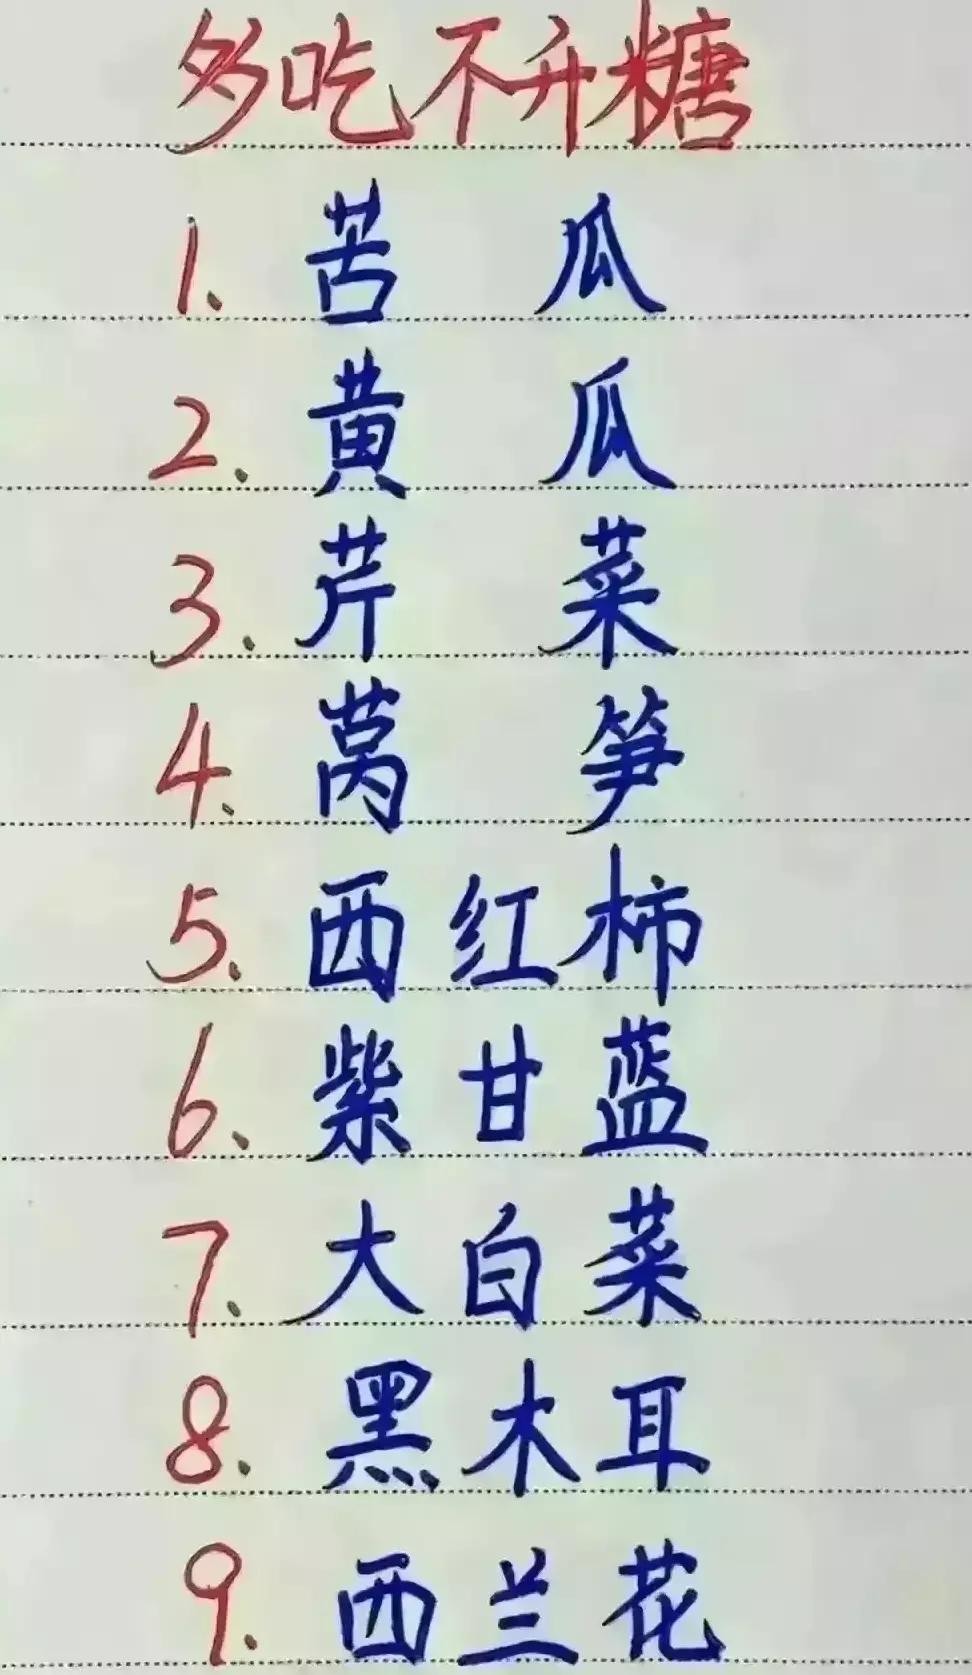 多吃不升糖
1. 苦瓜
2. 黄瓜
3. 芹菜
4. 莴笋
5. 西红柿
6. 紫甘蓝
7. 大白菜
8. 黑木耳
9. 西兰花